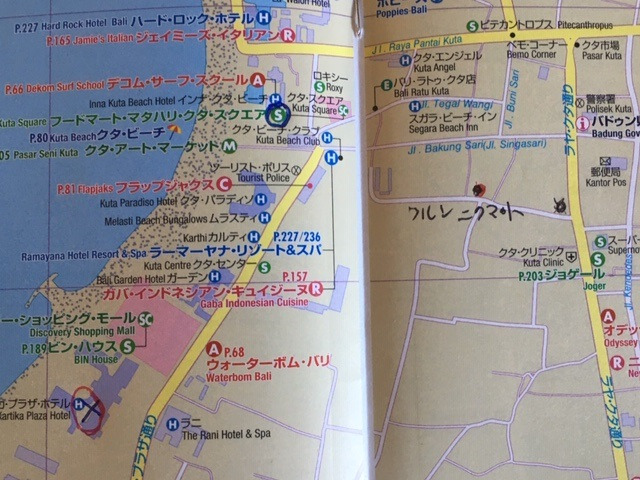 Waldn Hotel
P.227 Hard Rock Hotel Bali ハード・ロック・ホテル H
P.165 Jamie's Italian ジェイミーズ・イタリアン R
P.66 Dekom Surf School デコム・サーフ・スクール A
ロキシー
S Roxy
Inna Kuta Beach Hotel インナ・クタ・ビーチ H
クタ・スクエア
Kuta Square SC
Kuta Square フードマート・マタハリ・クタ・スクエア S
P.80 Kuta Beach クタ・ビーチ
クタ・ビーチ・クラブ
Kuta Beach Club H
05 Pasar Seni Kuta クタ・アート・マーケット M
H
ツーリスト・ポリス
Tourist Police
P.81 Flapjaks フラップジャックス C
Kuta Paradiso Hotel クタ・パラディソ H
Melasti Beach Bungalows ムラスティ H
Karthi カルティ H
P.227/236
Ramayana Hotel Resort & Spa ラーマーヤナ・リゾート&スパ
Kuta Centre クタ・センター S
Bali Garden Hotel ガーデン H
P.157
ガバ・インドネシアン・キュイジーヌ R
Gaba Indonesian Cuisine
ー・ショッピング・モール SC
Discovery Shopping Mall
P.189 ビン・ハウス S
BIN House
A P.68
ウォーターボム・バリ
Waterbom Bali
プラザ・ホテル
Kartika Plaza Hotel H
H ラニ
The Rani Hotel & Spa
プラザ通り
Poppies Bali
S ピテカントロプス Pitecanthropus
Jl. Raya Pantai Kuta
ベモ・コーナー
Bemo Corner
クタ市場
Pasar Kuta
H クタ・エンジェル
Kuta Angel
E バリ・ラトゥ・クタ店
Bali Ratu Kuta
Jl. Tegal Wangi
Jl. Buni Sari
H スガラ・ビーチ・イン
Segara Beach Inn
ラヤ・クタ通り
警察署
Polisek Kuta
i バドゥン
Badung Gov
Jl. Bakung Sari(Jl. Singasari)
郵便局
Kantor Pos
クタ・クリニック
Kuta Clinic
S スーパー
Supernova
S
P.203 ジョゲール
Joger
A
オデッ
Odyssey
R ニ
ラヤ・クタ通り